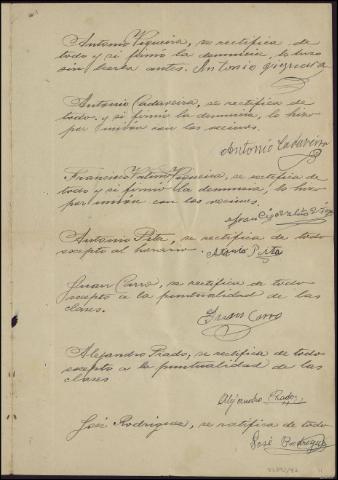 Antonio Viqueira, se rectifica de
todo y si firmó la denuncia, lo hizo
sin leerla antes. Antonio Viqueira
Antonio Cadaveira, se rectifica de
todo y si firmó la denuncia, lo hizo
por unión con los vecinos.
Antonio Cadaveira
Francisco Viqueira, se rectifica de
todo y si firmó la denuncia, lo hizo
por unión con los vecinos.
Antonio Pita, se rectifica de todo
escepto al horario. Antonio Pita
Juan Carro, se rectifica de todo
escepto a la puntualidad de las
clases.
Juan Carro
Alejandro Prado, se rectifica de todo
escepto a la puntualidad de las
clases
Alejandro Prado
José Rodriguez, se ratifica de todo
José Rodriguez